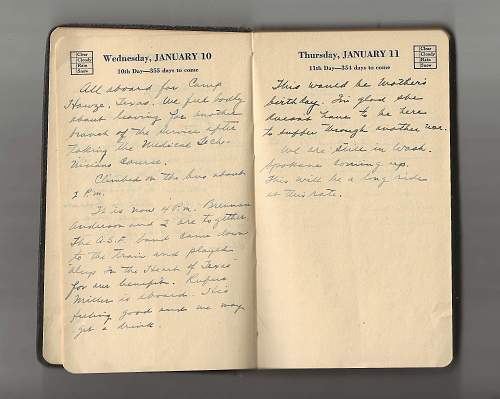 Clear
Cloudy
Rain
Snow
Wednesday, JANUARY 10
10th Day—355 days to come
All aboard for Camp
Howze, Texas. We feel badly
about leaving for another
branch of the service after
taking the Medical Tech-
nicians Course.
Climbed on the bus about
2 P.m.
It is now 4 P.m. Brennan
Anderson and I are together.
The A.S.F. band came down
to the train and played
"Deep In the Heart of Texas"
for our benefit. Rufus
Miller is aboard. He's
feeling good and we may
get a drink.
Thursday, JANUARY 11
11th Day—354 days to come
Clear
Cloudy
Rain
Snow
This would be Mother's
birthday. I'm glad she
doesnt have to be here
to suffer through another war.
We are still in Wash.
Spokane coming up.
This will be a long ride
at this rate.